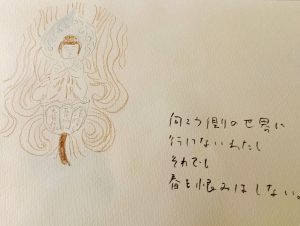 向こう側の世界に
行けないわたし
それでも
春を恨みはしない。